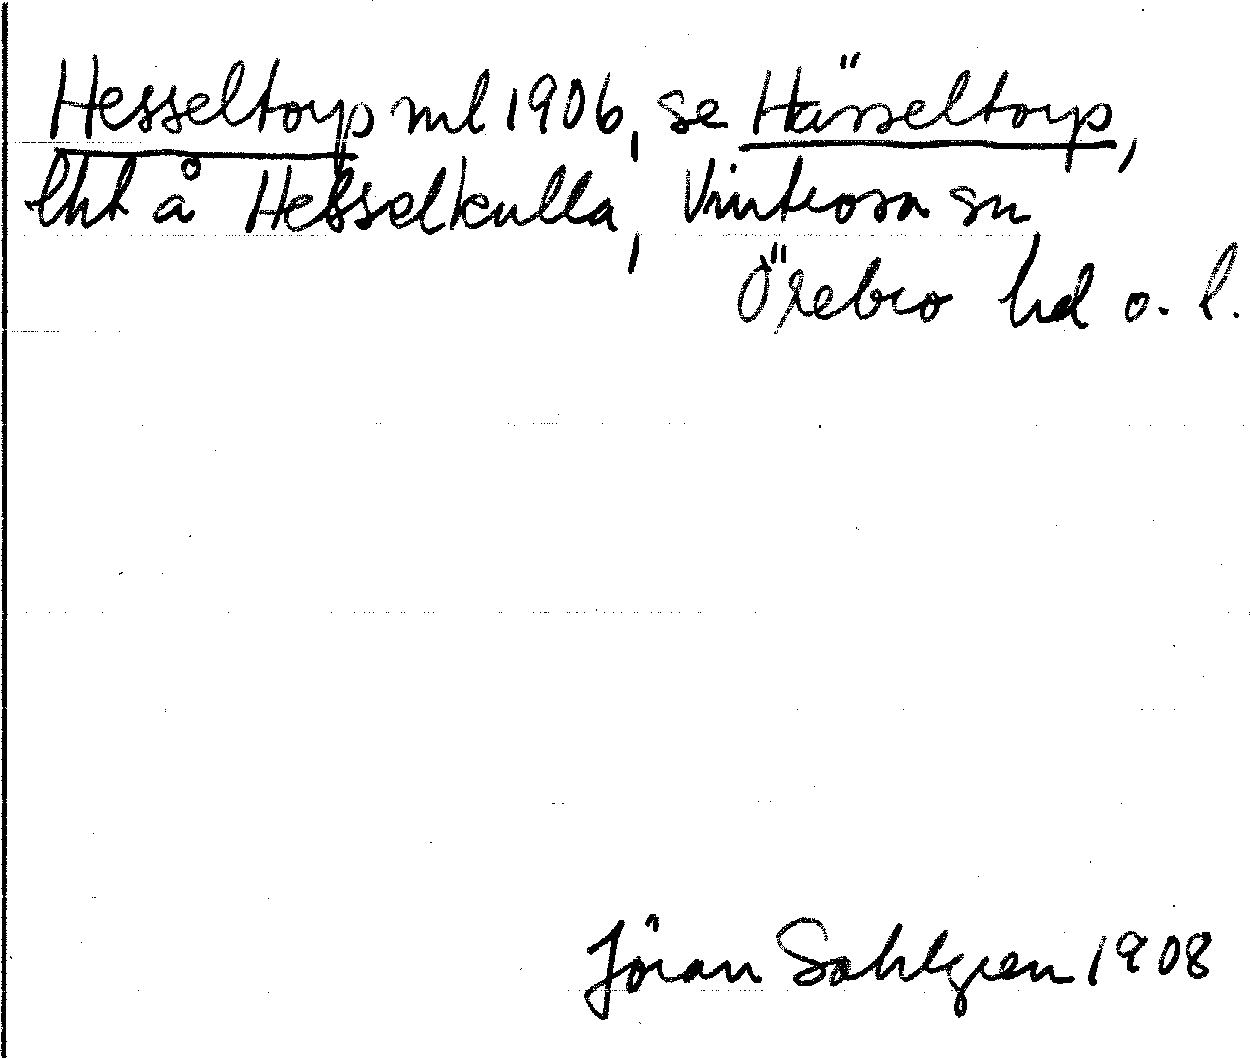 Hesseltorp ml 1906, se Hässeltorp,
lht å Hesselkulla, Vintrosa sn
Örebro hd o. l.
Jöran Sahlgren 1908